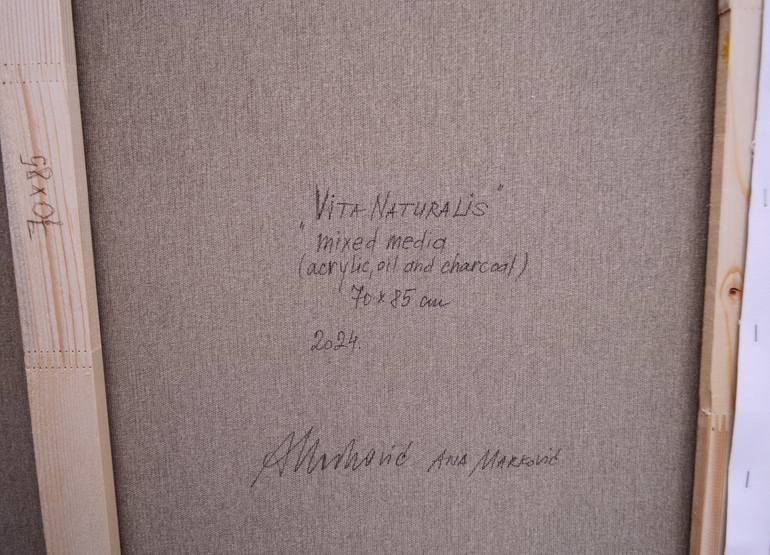 70x85
"VITA NATURALIS"
mixed media
(acrylic, oil and charcoal)
70x85 cm
2024.
AMarković ANA MARKOVIĆ